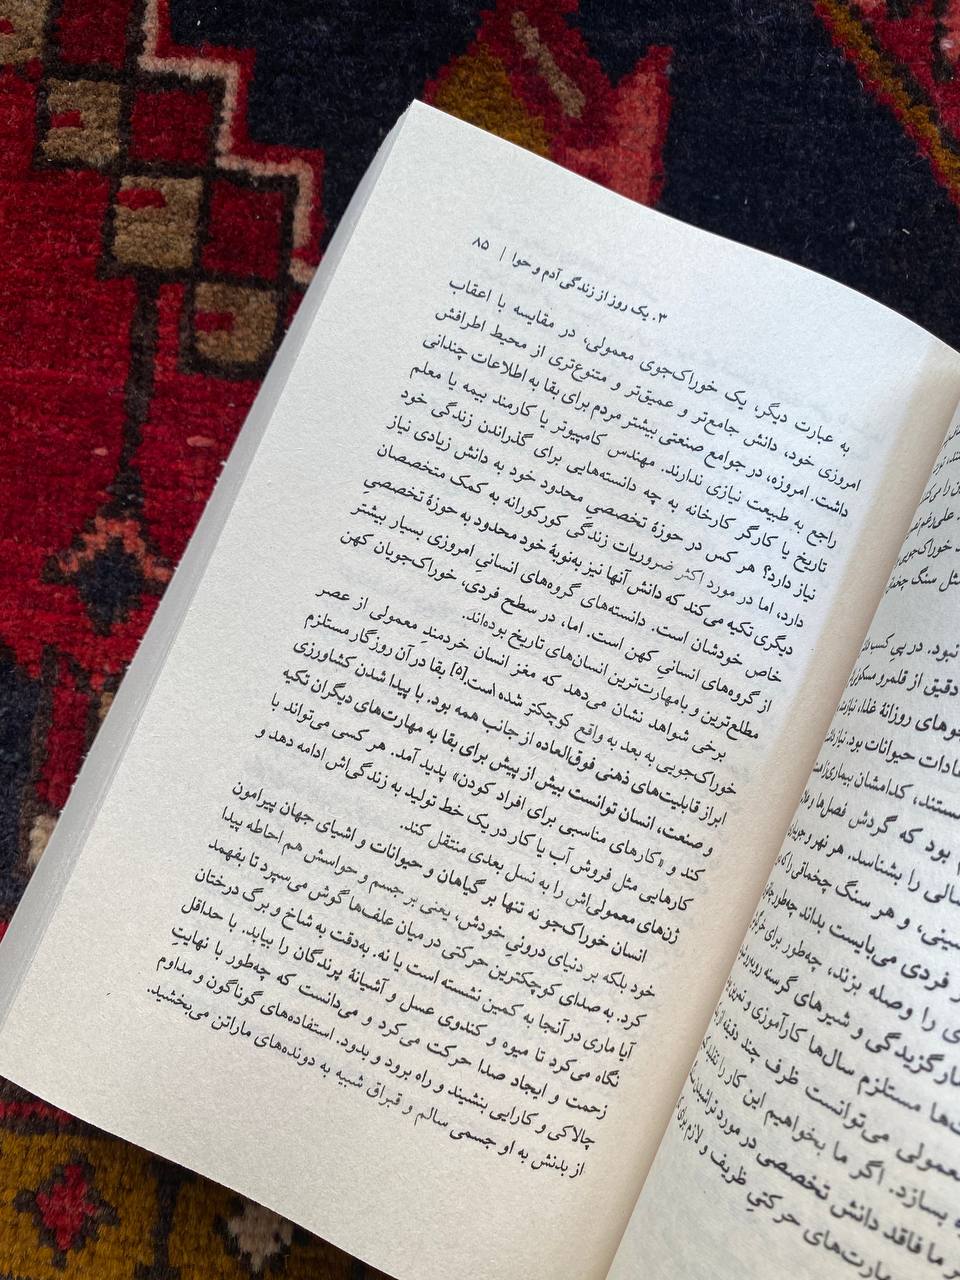 ۳. یک روز از زندگی آدم و حوا | ۸۵
به عبارت دیگر، یک خوراک‌جوی معمولی، در مقایسه با اعقاب
امروزی خود، دانش جامع‌تر و عمیق‌تر و متنوع‌تری از محیط اطرافش
داشت. امروزه، در جوامع صنعتی بیشتر مردم برای بقا به اطلاعات چندانی
راجع به طبیعت نیازی ندارند. مهندس کامپیوتر یا کارمند بیمه یا معلم
تاریخ یا کارگر کارخانه به چه دانسته‌هایی برای گذراندن زندگی خود
نیاز دارد؟ هر کس در حوزهٔ تخصصیِ محدود خود به دانش زیادی نیاز
دارد، اما در مورد اکثر ضروریات زندگی کورکورانه به کمک متخصصان
دیگری تکیه می‌کند که دانش آنها نیز به‌نوبهٔ خود محدود به حوزهٔ تخصصیِ
خاص خودشان است. دانسته‌های گروه‌های انسانیِ امروزی بسیار بیشتر
از گروه‌های انسانیِ کهن است. اما، در سطح فردی، خوراک‌جویان کهن
مطلع‌ترین و بامهارت‌ترین انسان‌های تاریخ بوده‌اند.
برخی شواهد نشان می‌دهد که مغز انسان خردمندِ معمولی از عصر
خوراک‌جویی به بعد به واقع کوچکتر شده است.[۵] بقا در آن روزگار مستلزم
ابراز قابلیت‌های ذهنی فوق‌العاده از جانب همه بود. با پیدا شدن کشاورزی
و صنعت، انسان توانست بیش از پیش برای بقا به مهارت‌های دیگران تکیه
کند و «کارهای مناسبی برای افراد کودن» پدید آمد. هر کسی می‌تواند با
کارهایی مثل فروش آب یا کار در یک خط تولید به زندگی‌اش ادامه دهد و
ژن‌های معمولی‌اش را به نسل بعدی منتقل کند.
انسان خوراک‌جو نه تنها بر گیاهان و حیوانات و اشیای جهان پیرامون
خود بلکه بر دنیای درونیِ خودش، یعنی بر جسم و حواسش هم احاطه پیدا
کرد. به صدای کوچکترین حرکتی در میان علف‌ها گوش می‌سپرد تا بفهمد
آیا ماری در آنجا به کمین نشسته است یا نه. به‌دقت به شاخ و برگ درختان
نگاه می‌کرد تا میوه و کندوی عسل و آشیانهٔ پرندگان را بیابد. با حداقل
زحمت و ایجاد صدا حرکت می‌کرد و می‌دانست که چه‌طور با نهایتِ
چالاکی و کارایی بنشیند و راه برود و بدود. استفاده‌های گوناگون و مداوم
از بدنش به او جسمی سالم و قبراق شبیه به دونده‌های ماراتن می‌بخشید.
نبود. در پیِ کسب
دقیق از قلمرو
روزانهٔ غذا،
حیوانات بود.
کدامشان
بود که گردش فصل‌ها
را بشناسد. هر نهر و
و هر سنگ چخماقی را
فردی می‌بایست بداند چه‌طور
را وصله بزند، چه‌طور برای
مارگزیدگی و شیرهای گرسنه
مستلزم سال‌ها کارآموزی و
می‌توانست ظرف چند دقیقه از
بسازد. اگر ما بخواهیم این کار را
ما فاقد دانش تخصصی در مورد
حرکتیِ ظریف و لازم برای